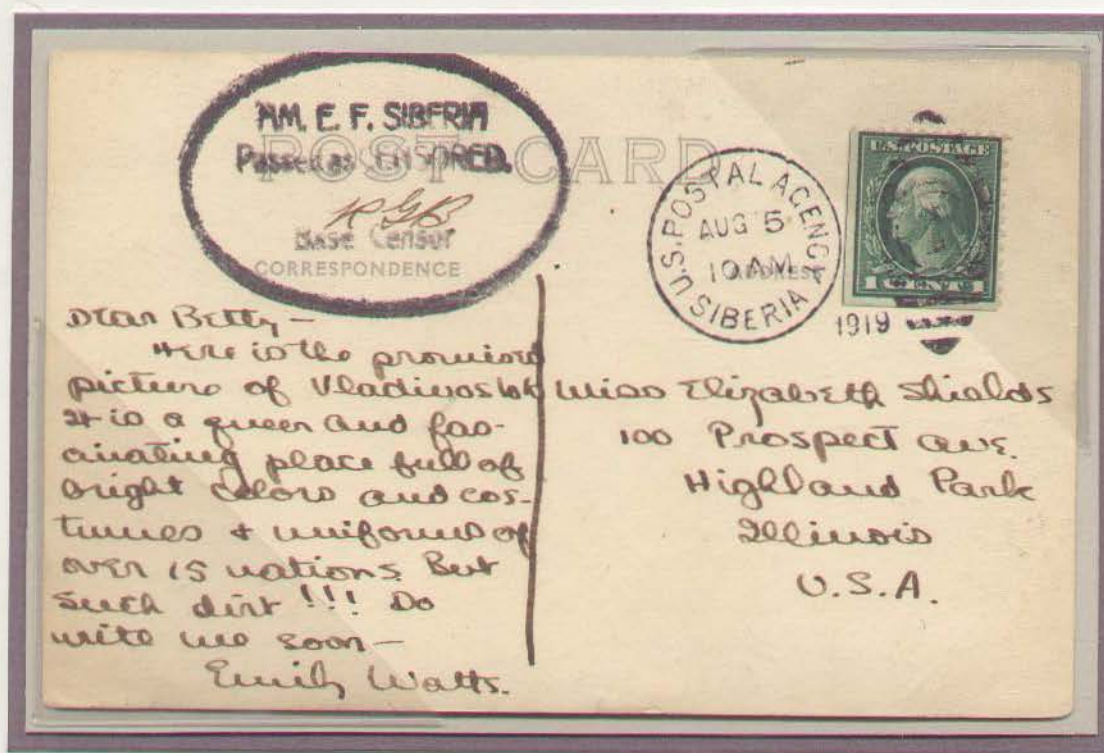 AM. E. F. SIBERIA
POST CARD
Passed as CENSORED.
RGB
Base Censor
CORRESPONDENCE
U.S. POSTAL AGENCY
AUG 5
10 AM
SIBERIA
1919
ADDRESS
U.S. POSTAGE
1 CENT 1
Dear Betty—
Here is the promised
picture of Vladivostok
It is a queer and fas-
cinating place full of
bright colors and cos-
tumes + uniforms of
over 15 nations. But
such dirt !!! Do
write me soon—
Emily Watts.
Miss Elizabeth Shields
100 Prospect ave.
Highland Park
Illinois
U.S.A.